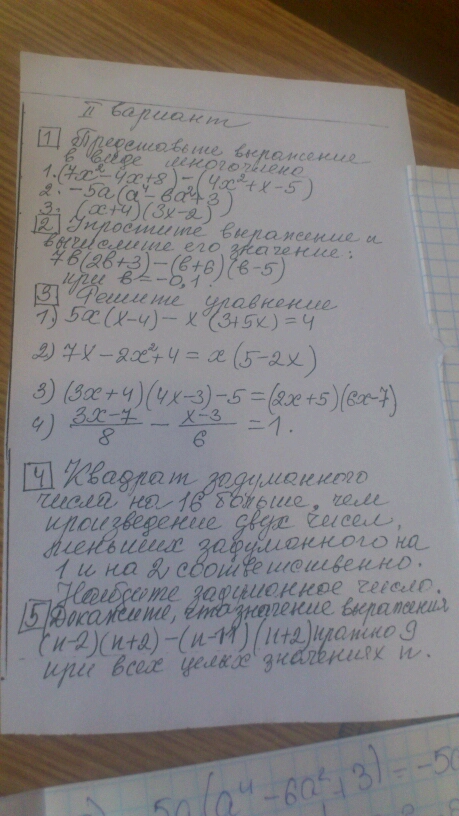 II вариант
1 Представьте выражение
в виде многочлена
1. (7x²-4x+8)-(4x²+x-5)
2. -5a(a⁴-6a²+3)
3. (x+4)(3x-2)
2 Упростите выражение и
вычислите его значение:
7в(2в+3)-(в+6)(в-5)
при в=-0,1
3 Решите уравнение
1.) 5x(x-4)-x(3+5x)=4
2) 7x-2x²+4=x(5-2x)
3) (3x+4)(4x-3)-5=(2x+5)(6x-7)
4) (3x-7)/8 - (x-3)/6 = 1.
4 Квадрат задуманного
числа на 16 больше, чем
произведение двух чисел,
меньших задуманного на
1 и на 2 соответственно.
Найдите задуманное число.
5 Докажите, что значение выражения
(n-2)(n+2)-(n-11)(n+2) кратно 9
при всех целых значениях n.
5a(a⁴-6a²+3)=-5a